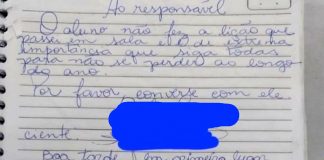 Ao responsável
O aluno não fez a lição que
passei em sala e é de extrema
importância que siga todas
para não se perder ao longo
do ano.
Por favor, converse com ele
ciente
Boa tarde, em primeiro lugar